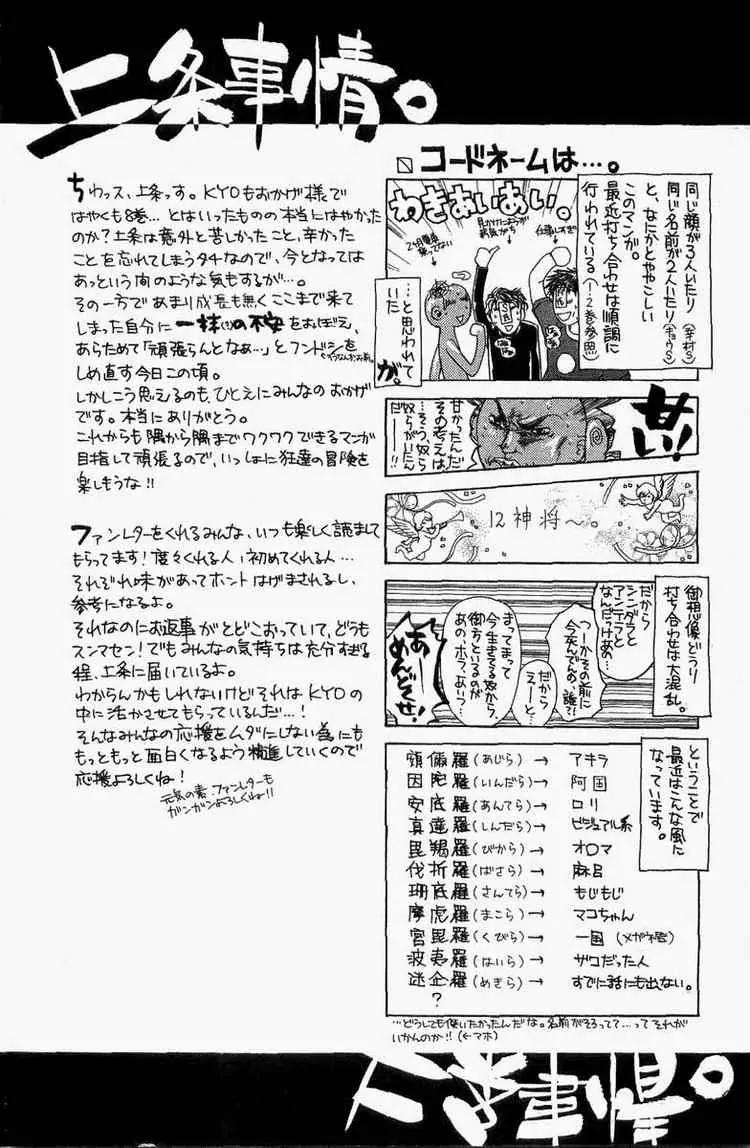 上条事情。
ちわっス、上条っす。KYOもおかげ様で
はやくも8巻…とはいったものの本当にはやかった
のか?上条は意外と苦しかったこと、辛かった
ことを忘れてしまうタチなので、今となっては
あっという間のような気もするが…。
その一方であまり成長も無くここまで来て
しまった自分に一抹の不安をおぼえ、
あらためて「頑張らんとなぁ…」とフンドシを
しめ直す今日この頃。
しかしこう思えるのも、ひとえにみんなのおかげ
です。本当にありがとう。
これからも隅から隅までワクワクできるマンガ
目指して頑張るので、いっしょに狂達の冒険を
楽しもうな!!
ファンレターをくれるみんな、いつも楽しく読まして
もらってます!度々くれる人、初めてくれる人…
それぞれ味があってホントはげまされるし、
参考になるよ。
それなのにお返事がとどこおっていて、どうも
スンマセン!でもみんなの気持ちは充分すぎる
程、上条に届いているよ。
わからんかもしれないけどそれはKYOの
中に活かさせてもらっているんだ…!
そんなみんなの応援をムダにしない為にも
もっともっと面白くなるよう精進していくので
応援よろしくね!
元気の素、ファンレターも
ガンガンよろしくね!!
コードネームは…。
同じ顔が3人いたり(幸村s)
同じ名前が2人いたり(キョウs)
と、なにかとややこしい
このマンガ。
最近打ち合わせは順調に
行われている(1・2巻参照)
わきあいあい。
…と思われて
いた
が。
甘い!
甘かったんだ
その考えは
…そう、奴ら
奴らがいたん
だ──!!
12神将〜。
御想像どうり
打ち合わせは大混乱。
だから!
シンダラと
アンテラと
なんだけどぁ…
つーかその前に
今死んでんの誰?!
だから
えーと…
まってまって
今生きてる奴から、
御方といるのが
あの、ホラ、あいつ…
あ"
めんどくせ!
ということで
最近はこんな風に
なっています。
頞儞羅(あじら)→ アキラ
因陀羅(いんだら)→ 阿国
安底羅(あんてら)→ ロリ
真達羅(しんだら)→ ビジュアル系
毘羯羅(びから)→ オロマ
伐折羅(ばさら)→ 麻呂
珊底羅(さんてら)→ もじもじ
摩虎羅(まこら)→ マコちゃん
宮毘羅(くびら)→ 一国(メガネ登)
波夷羅(はいら)→ ザコだった人
迷企羅(めきら)→ すでに話にも出ない。
?
…どうしても使いたかったんだな。名前がそろってて…ってそれが
いかんのか!!(←アホ)
上条事情。